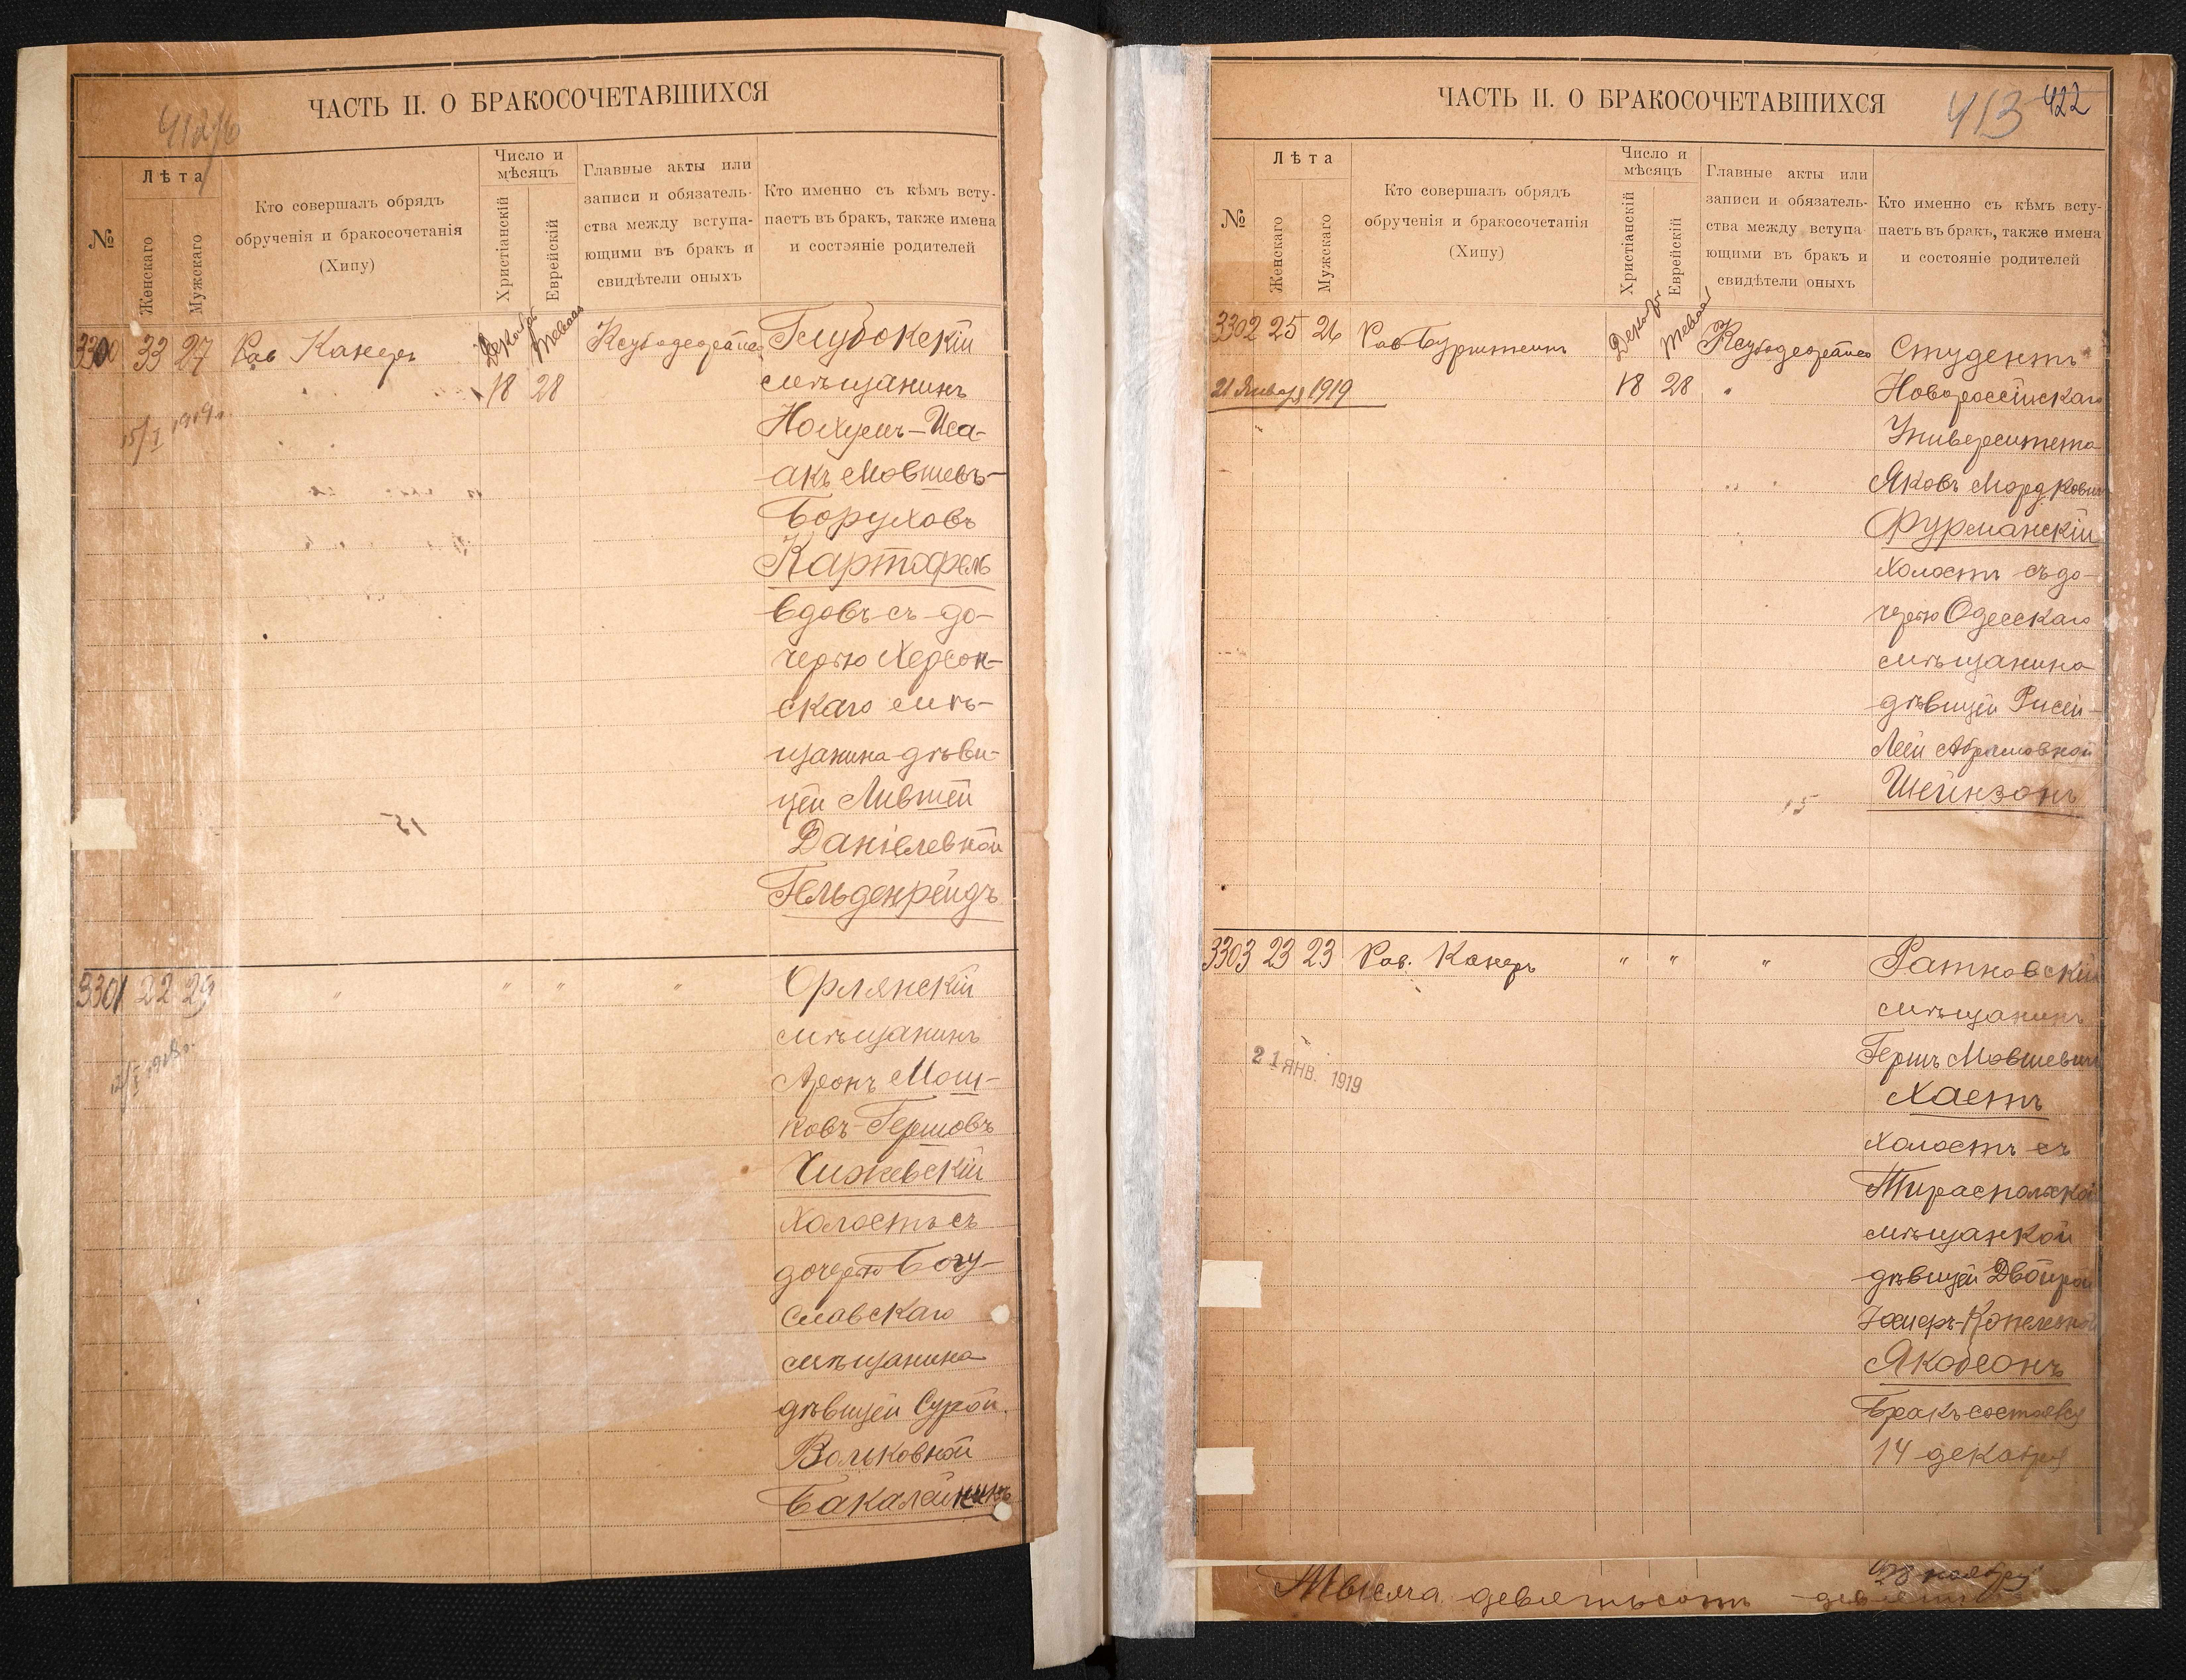 ЧАСТЬ II. О БРАКОСОЧЕТАВШИХСЯ
№
Лѣта
Женскаго
Мужскаго
Кто совершалъ обрядъ
обрученія и бракосочетанія
(Хипу)
Число и
мѣсяцъ
Христіанскій
Еврейскій
Главные акты или
записи и обязатель-
ства между вступа-
ющими въ бракъ и
свидѣтели оныхъ
Кто именно съ кѣмъ всту-
паетъ въ бракъ, также имена
и состояніе родителей
3300 33 27 Рав Канеръ
18 28
Глубокскій
мѣщанинъ
Нохумъ-Иса-
акъ Мовшевъ-
Боруховъ
Картофель
вдовъ съ до-
черью Херсон-
скаго мѣ-
щанина дѣви-
цей Лившей
Даніелевной
Гельденрейдъ
15
3301 22 29 " " " "
Орлянскій
мѣщанинъ
Аронъ Мош-
ковъ-Гершовъ
Чижевскій
холостъ съ
дочерью Богу-
славскаго
мѣщанина
дѣвицей Сурой
Вольковной
Бакалейникъ
ЧАСТЬ II. О БРАКОСОЧЕТАВШИХСЯ
413 422
№
Лѣта
Женскаго
Мужскаго
Кто совершалъ обрядъ
обрученія и бракосочетанія
(Хипу)
Число и
мѣсяцъ
Христіанскій
Еврейскій
Главные акты или
записи и обязатель-
ства между вступа-
ющими въ бракъ и
свидѣтели оныхъ
Кто именно съ кѣмъ всту-
паетъ въ бракъ, также имена
и состояніе родителей
3302 25 26 Рав Бурштейнъ
21 Января 1919
18 28
Студентъ
Новороссійскаго
Университета
Яковъ Мордковичъ
Фурманскій
холостъ съ до-
черью Одесскаго
мѣщанина
дѣвицей Рисей-
Леей Абрамовной
Шейнзонъ
15
3303 23 23 Рав. Канеръ " " "
21 ЯНВ. 1919
Ратновскій
мѣщанинъ
Гершъ Мовшевичъ
Хаетъ
холостъ съ
Тираспольской
мѣщанкой
дѣвицей Двойрой
Якобсонъ
Бракъ состоялся
14 декабря
28 ноября
Тысяча девятьсотъ